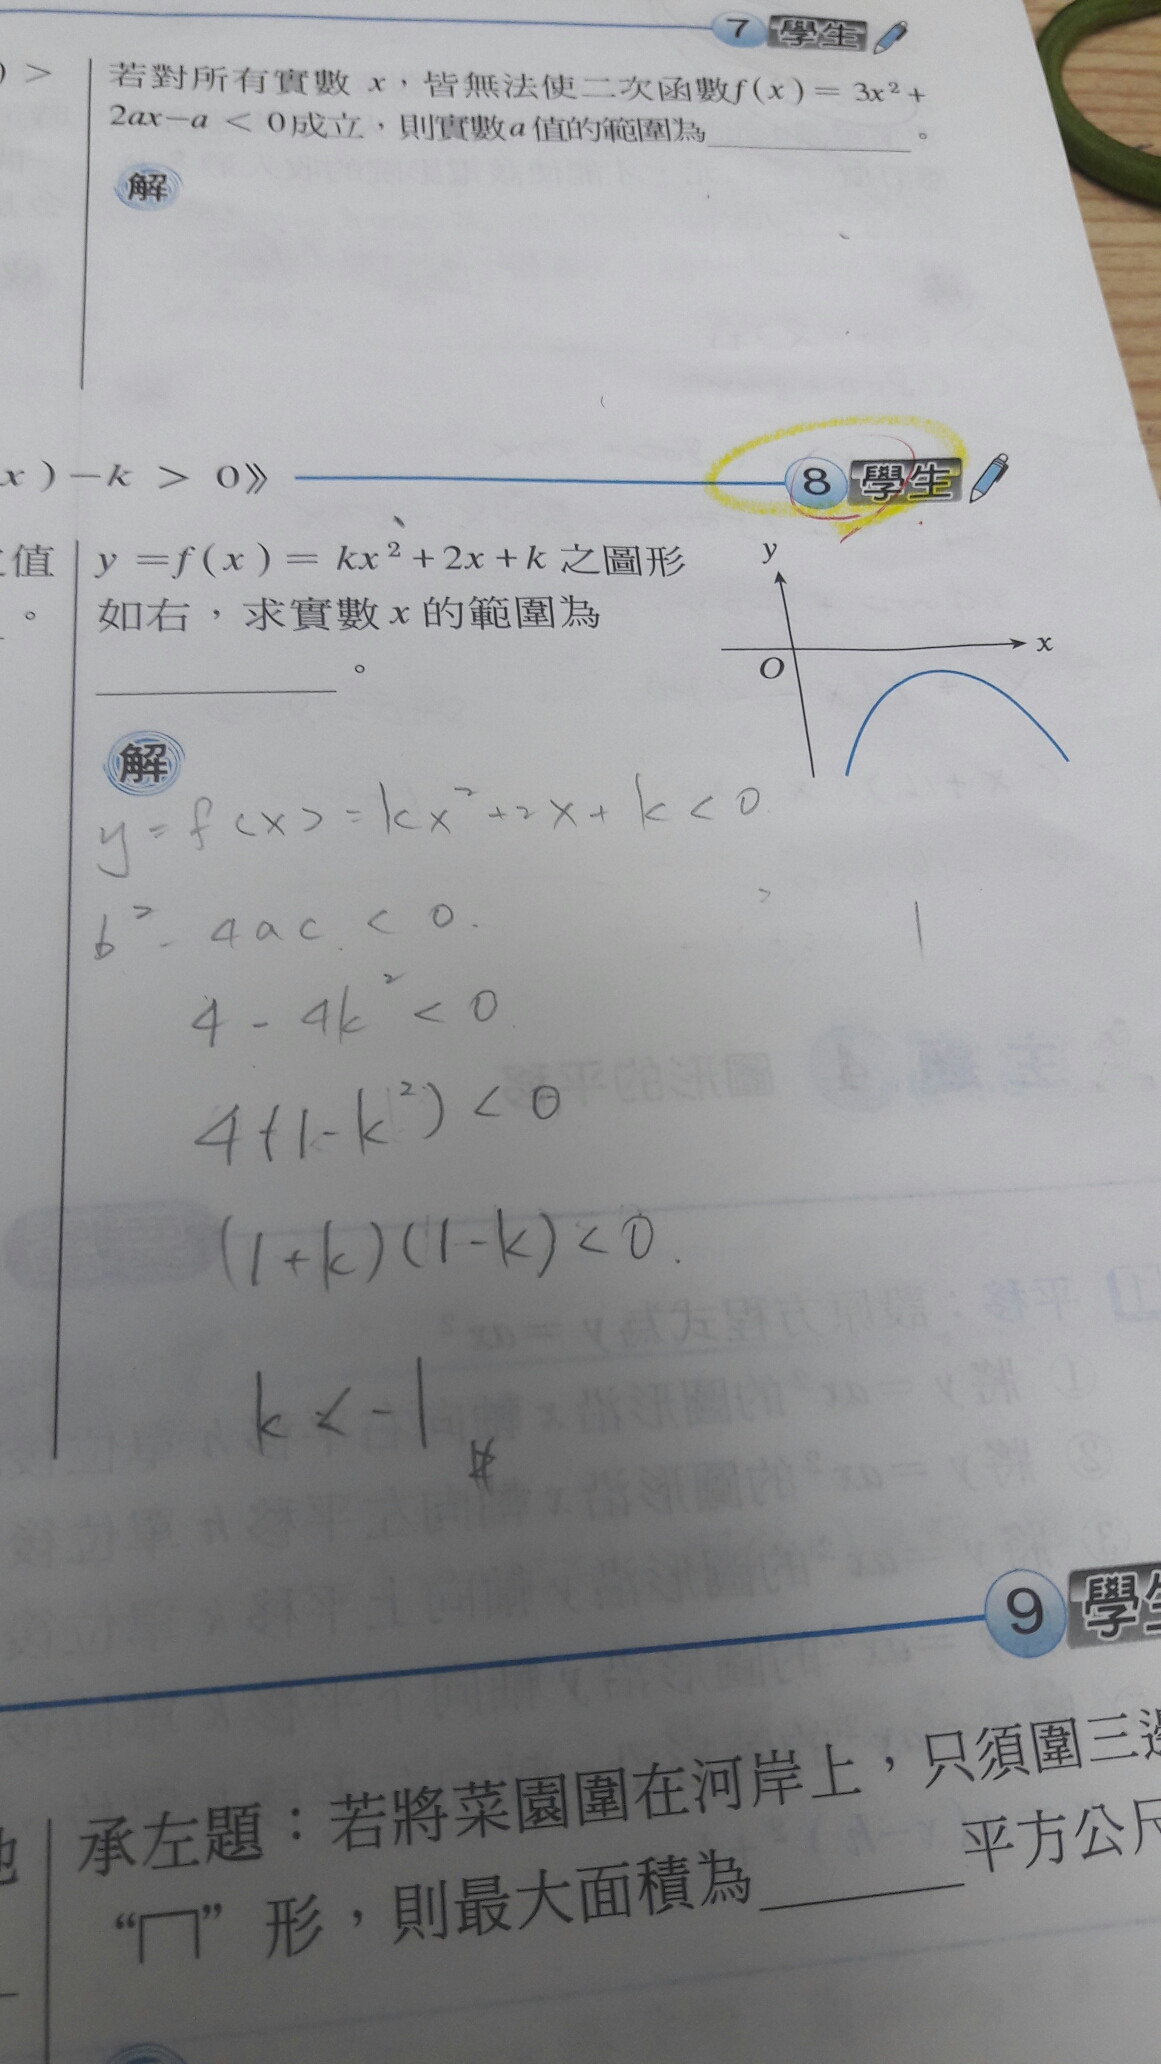 7 學生
) >
若對所有實數 x，皆無法使二次函數f(x) = 3x²+
2ax−a < 0成立，則實數a值的範圍為________。
解
x)−k > 0》
8 學生
值
y =f(x) = kx²+2x+k 之圖形
。
如右，求實數 x 的範圍為
________。
y
x
O
解
y = f(x) = kx²+2x+k<0
b²-4ac<0.
4-4k²<0
4(1-k²)<0
(1+k)(1-k)<0.
k<-1#
9 學生
承左題：若將菜園圍在河岸上，只須圍三邊
“冂”形，則最大面積為________平方公尺